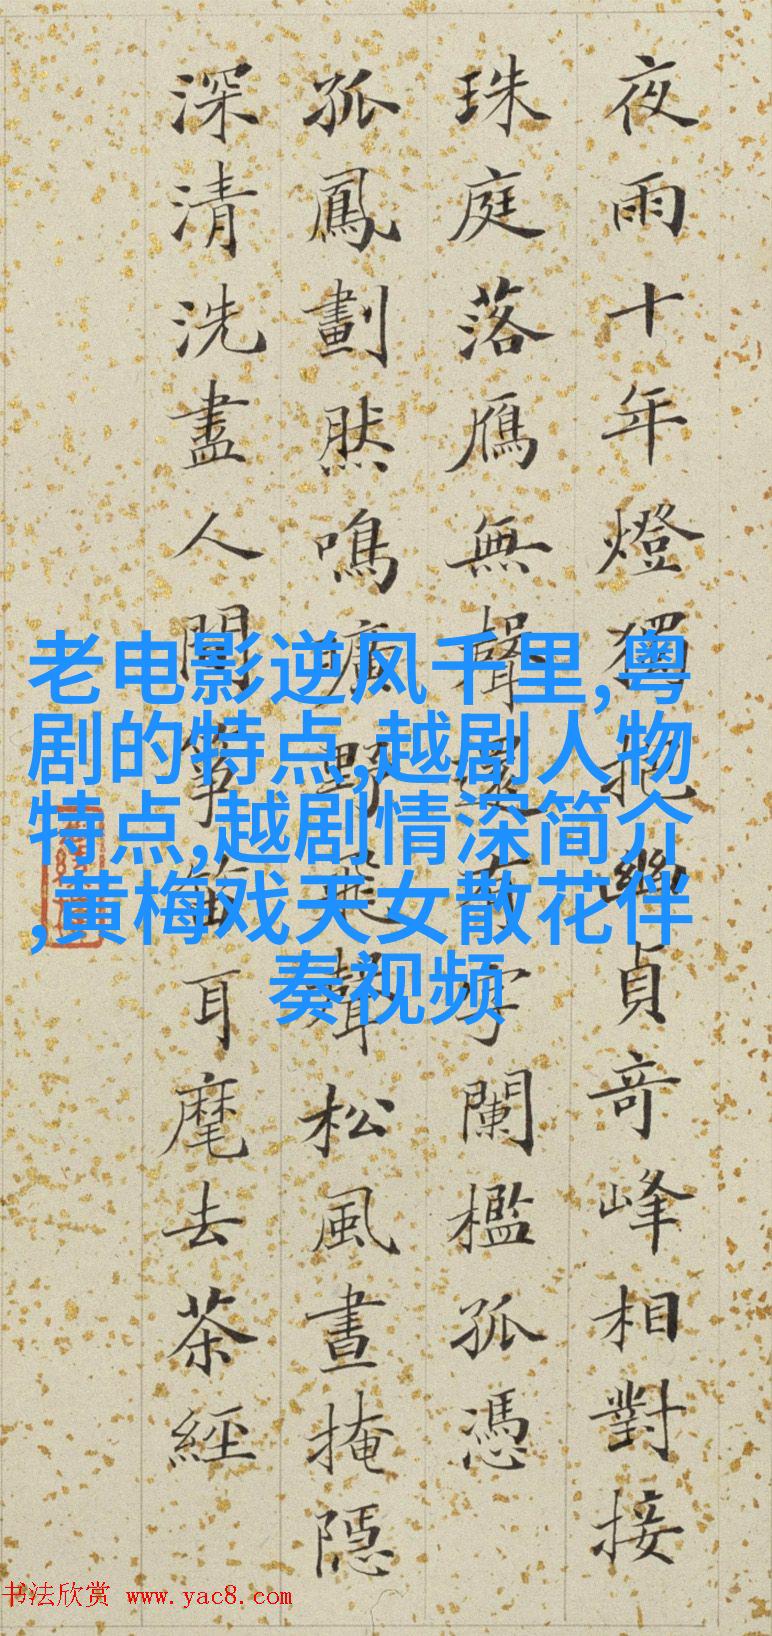 夜雨十年燈獨抱幽貞奇峰相對接
珠庭落鴈無聲還有字闌檻孤憑
孤鳳劃然鳴曠野飛聲松風晝掩隱
深清洗盡人間箏笛耳麾去茶經
老电影逆风千里,粤
剧的特点,越剧人物
特点,越剧情深简介
,黄梅戏天女散花伴
奏视频
书法欣赏 www.yac8.com